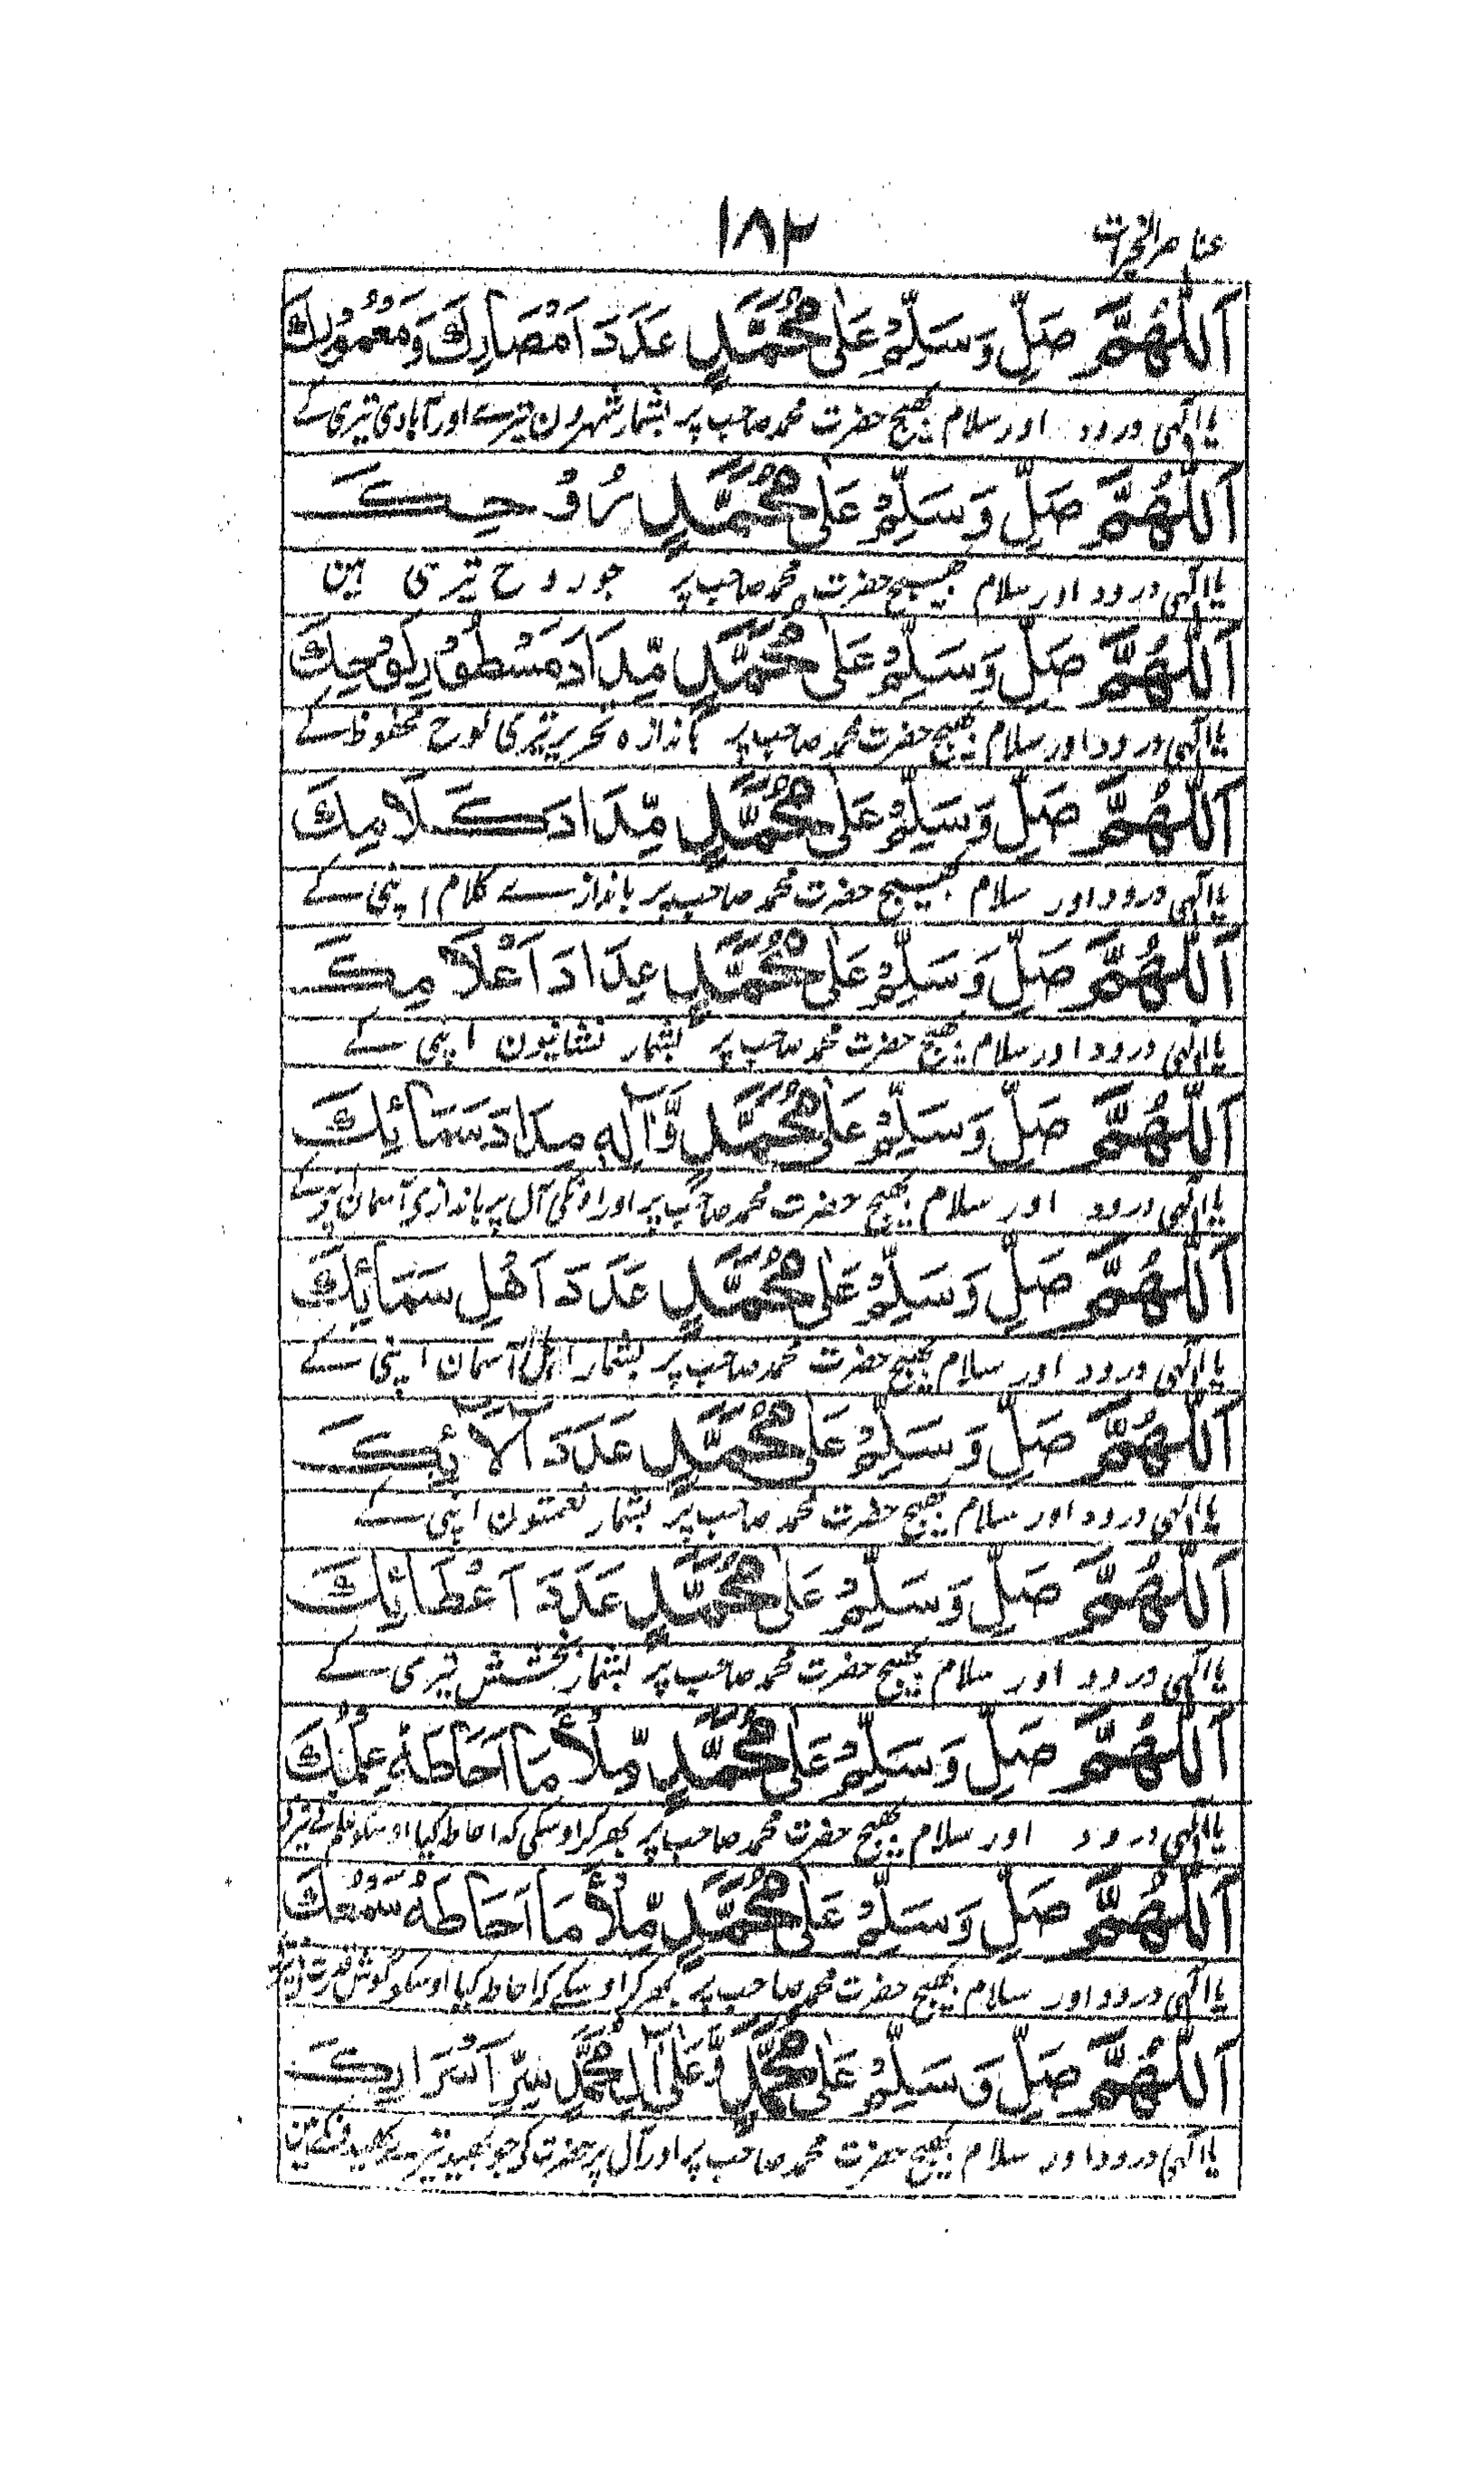 عناصر الخیرات
۱۸۲
اَللّٰهُمَّ صَلِّ وَسَلِّمْ عَلٰی مُحَمَّدٍ عَدَدَ اَمْصَارِكَ وَمَعْمُوْرِكَ
یا الٰہی درود اور سلام بھیج حضرت محمد صاحب پر بشمار شہرون تیرے اور آبادی تیری کے
اَللّٰهُمَّ صَلِّ وَسَلِّمْ عَلٰی مُحَمَّدٍ رُوْحِكَ
یا الٰہی درود اور سلام بھیج حضرت محمد صاحب پر جو روح تیری ہین
اَللّٰهُمَّ صَلِّ وَسَلِّمْ عَلٰی مُحَمَّدٍ مِّدَادَ مَسْطُوْرِ لَوْحِكَ
یا الٰہی درود اور سلام بھیج حضرت محمد صاحب پر باندازہ تحریر تیری لوح محفوظ کے
اَللّٰهُمَّ صَلِّ وَسَلِّمْ عَلٰی مُحَمَّدٍ مِّدَادَ كَلَامِكَ
یا الٰہی درود اور سلام بھیج حضرت محمد صاحب پر باندازے کلام اپنی کے
اَللّٰهُمَّ صَلِّ وَسَلِّمْ عَلٰی مُحَمَّدٍ عِدَادَ اَعْلَامِكَ
یا الٰہی درود اور سلام بھیج حضرت محمد صاحب پر بشمار نشانیون اپنی کے
اَللّٰهُمَّ صَلِّ وَسَلِّمْ عَلٰی مُحَمَّدٍ وَّآلِهٖ مِدَادَ سَمَائِكَ
یا الٰہی درود اور سلام بھیج حضرت محمد صاحب پر اور اونکی آل پر باندازی آسمان
اَللّٰهُمَّ صَلِّ وَسَلِّمْ عَلٰی مُحَمَّدٍ عَدَدَ اَهْلِ سَمَائِكَ
یا الٰہی درود اور سلام بھیج حضرت محمد صاحب پر بشمار اہل آسمان اپنی کے
اَللّٰهُمَّ صَلِّ وَسَلِّمْ عَلٰی مُحَمَّدٍ عَدَدَ آلَائِكَ
یا الٰہی درود اور سلام بھیج حضرت محمد صاحب پر بشمار نعمتون اپنی کے
اَللّٰهُمَّ صَلِّ وَسَلِّمْ عَلٰی مُحَمَّدٍ عَدَدَ اَعْطَائِكَ
یا الٰہی درود اور سلام بھیج حضرت محمد صاحب پر بشمار بخشش تیری کے
اَللّٰهُمَّ صَلِّ وَسَلِّمْ عَلٰی مُحَمَّدٍ مِّلْأَ مَا اَحَاطَهٗ عِلْمُكَ
یا الٰہی درود اور سلام بھیج حضرت محمد صاحب پر بھر کر اوسکی کہ احاطہ کیا اوسکو علم
اَللّٰهُمَّ صَلِّ وَسَلِّمْ عَلٰی مُحَمَّدٍ مِّلْأَ مَا اَحَاطَهٗ سَمْعُكَ
یا الٰہی درود اور سلام بھیج حضرت محمد صاحب پر بھر کر اوسکے کہ احاطہ کیا اوسکو گوش قدرت
اَللّٰهُمَّ صَلِّ وَسَلِّمْ عَلٰی مُحَمَّدٍ وَّعَلٰی آلِ مُحَمَّدٍ سِرِّ اَسْرَارِكَ
یا الٰہی درود اور سلام بھیج حضرت محمد صاحب پر اور آل پر حضرت کی جو بھید تیرے